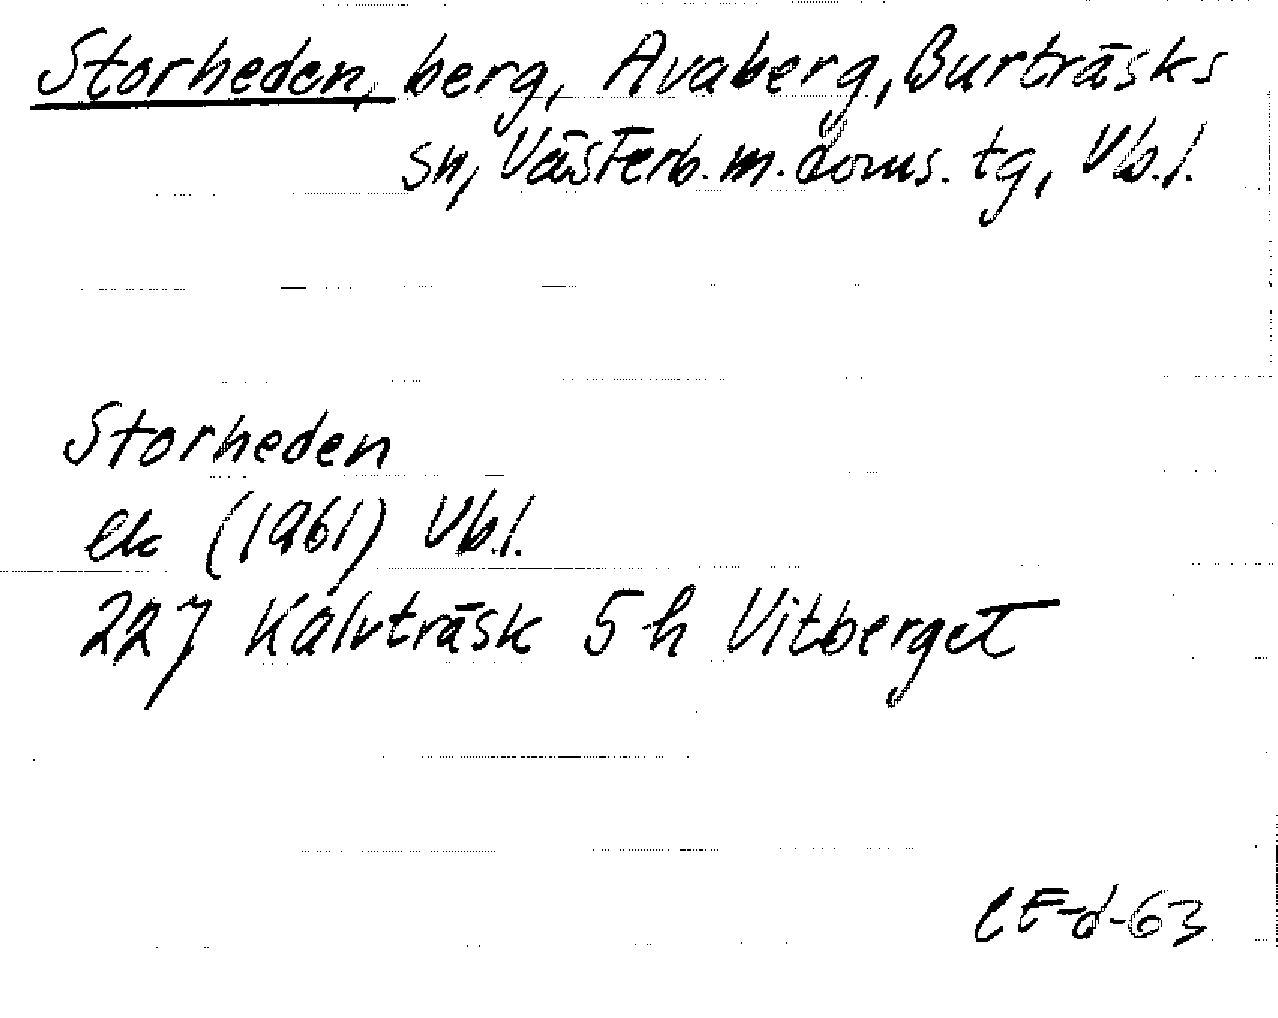 Storheden, berg, Avaberg, Burträsks
sn, Västerb. m. doms. tg, Vb.l.
Storheden
ek (1961) Vb.l.
227 Kalvträsk 5 h Vitberget
CE-d-63